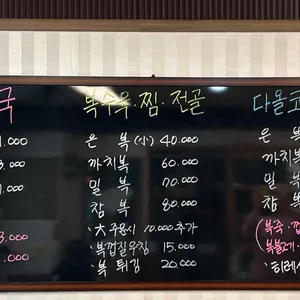 국
복수육·찜·전골
다올코
.000
은 복 (小) 40.000
은
3.000
까치복 60.000
까치복
.000
밀 복 70.000
밀 복
참 복 80.000
참 복
·大 주문시 10.000 추가
(복죽·껍
3.000
·복껍질무침 15.000
복불고기·
.000
·복 튀김 20.000
·티레